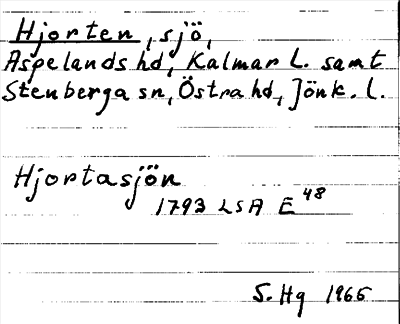 Hjorten, sjö,
Aspelands hd, Kalmar L. samt
Stenberga sn, Östra hd, Jönk. l.
Hjortasjön
1793 LSA E 48
S. Hg 1965